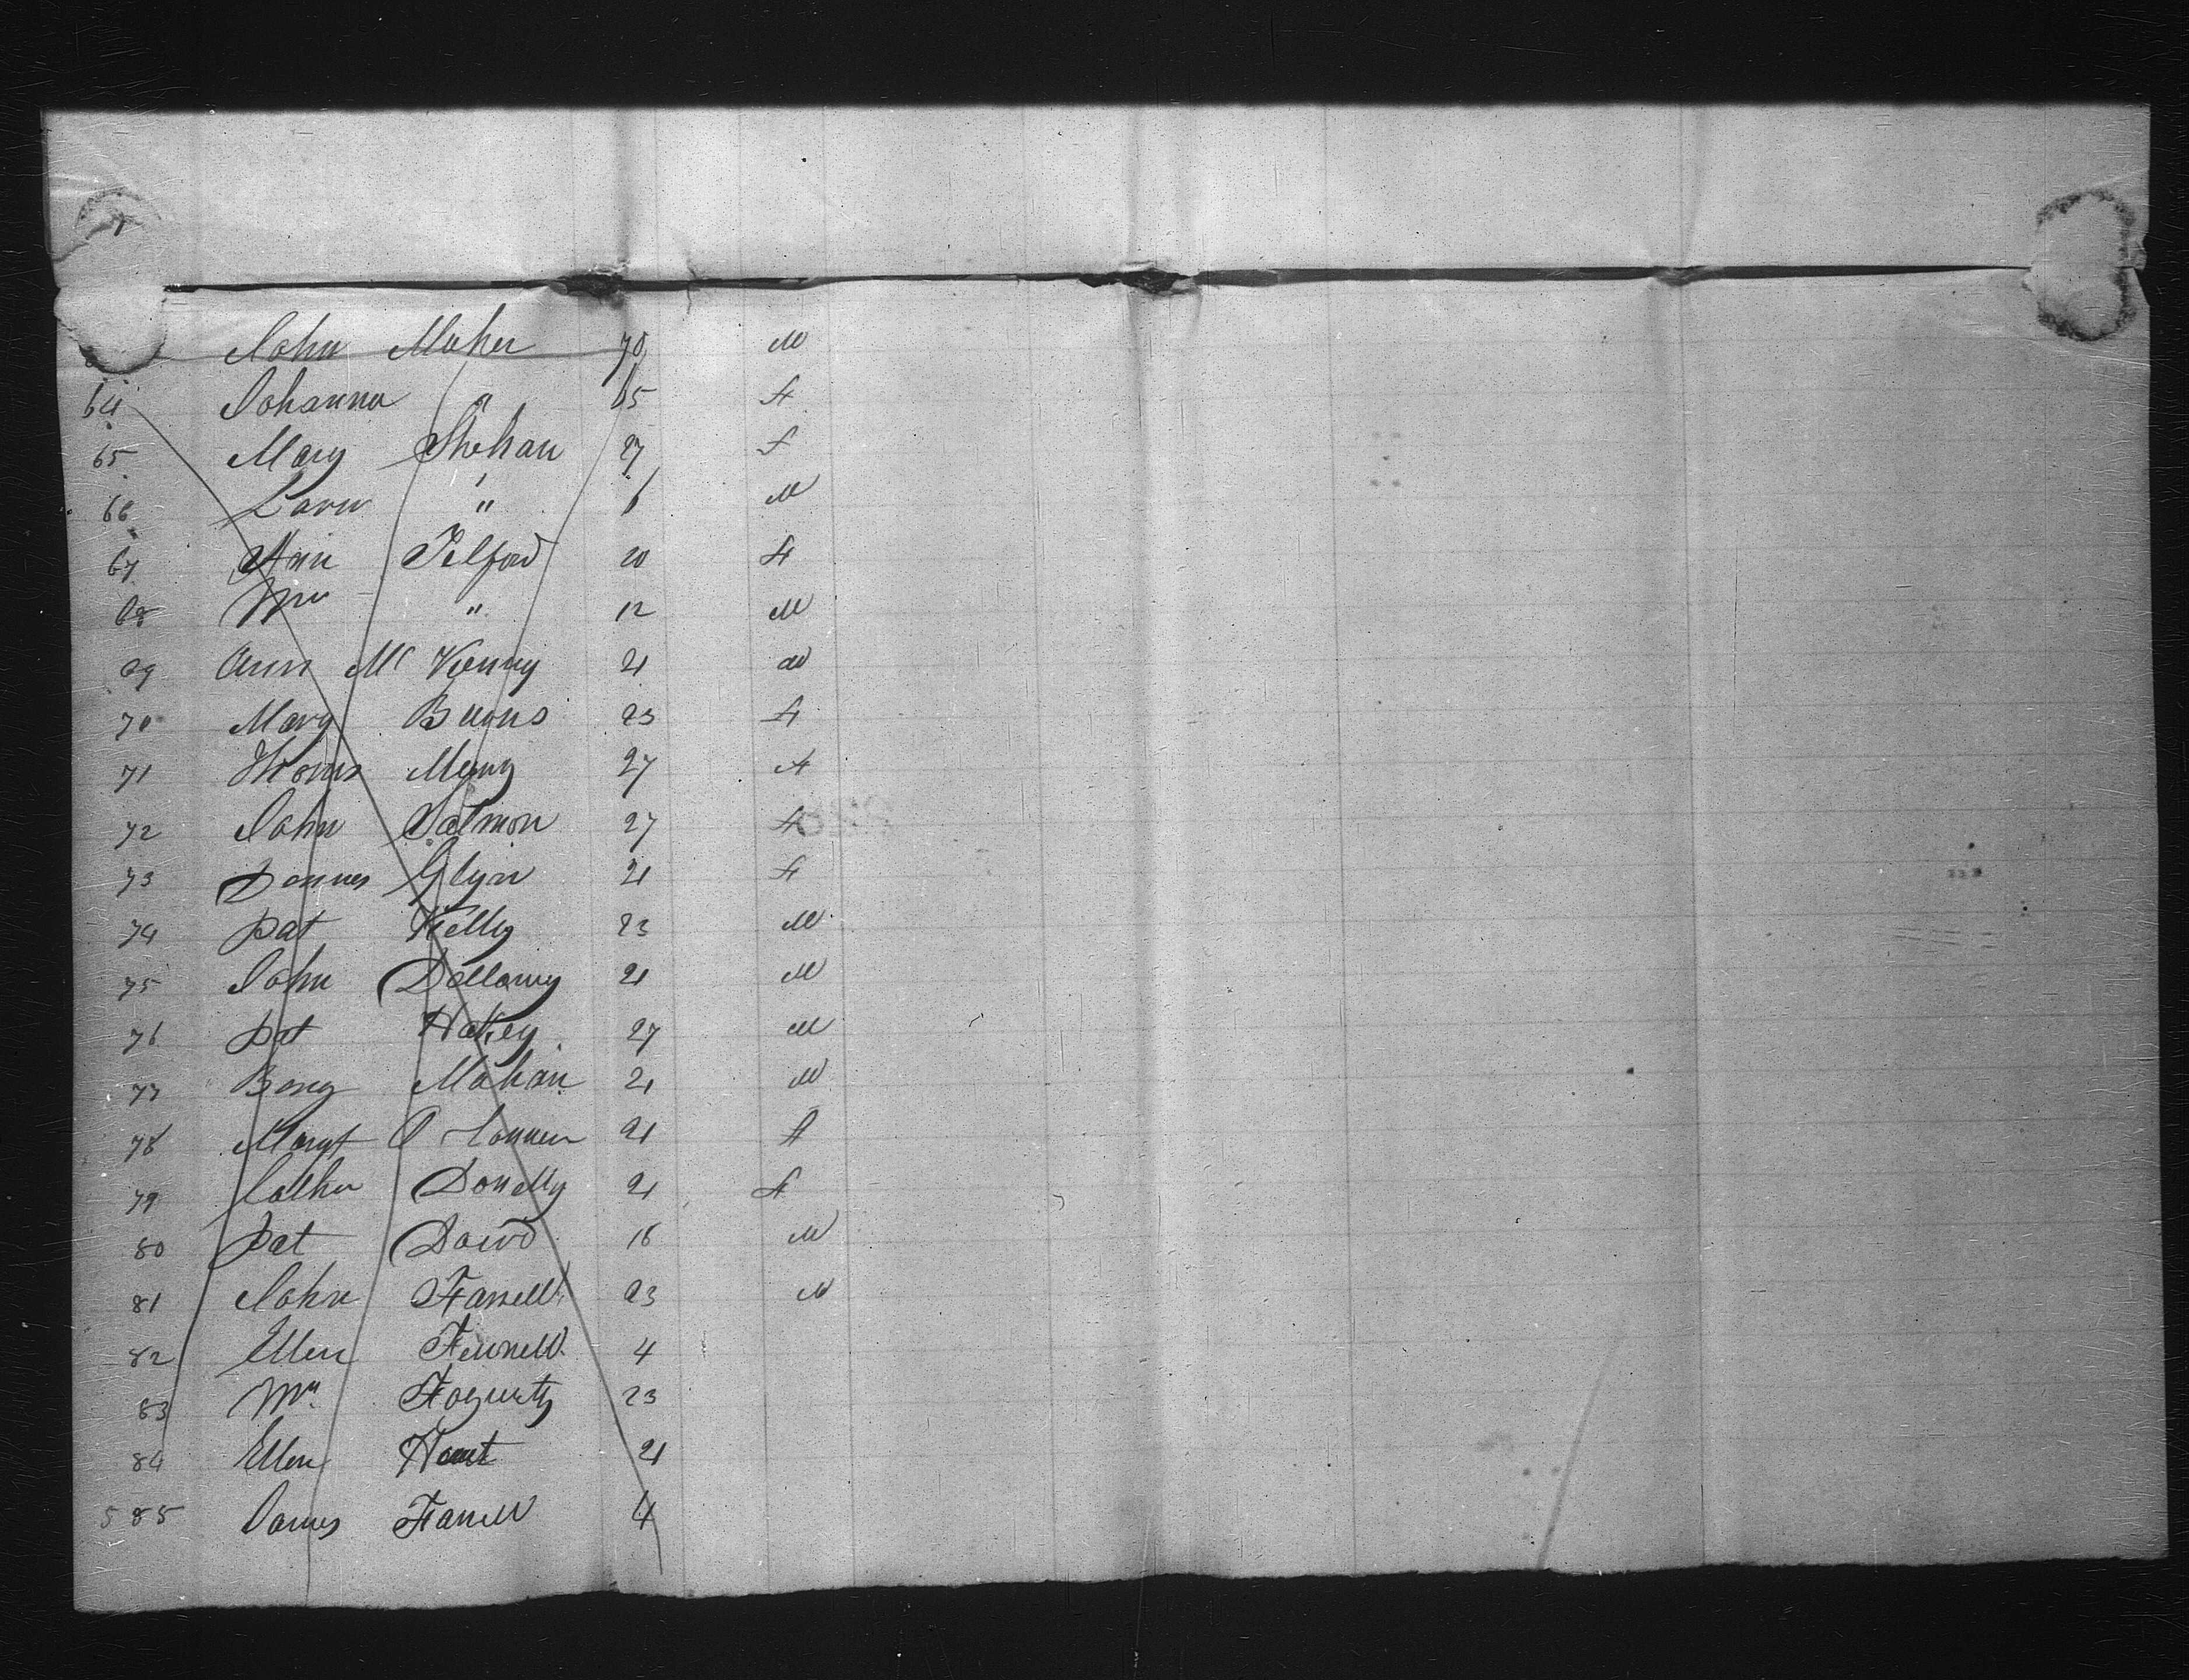 John Maher 70 M
64 Johanna " 65 F
65 Mary Shehan 27 F
66 Lawr " 6 M
67 Ann Telford 20 F
68 Wm " 12 M
69 Ann Mc Kenny 21 M
70 Mary Burns 23 F
71 Thoms 27 F
72 John Salmon 27 F
73 James Glynn 21 F
74 Pat Kelly 23 M
75 John Dollaney 21 M
76 Pat 27 M
77 Mahan 21 M
78 Margt O Conner 21 F
79 Cathe Donelly 21 F
80 Pat Dowd 18 M
81 John Farrell 23 M
82 Ellen Farrell 4
83 Wm. Fogurty 23
84 Ellen 21
585 James Farrell 4